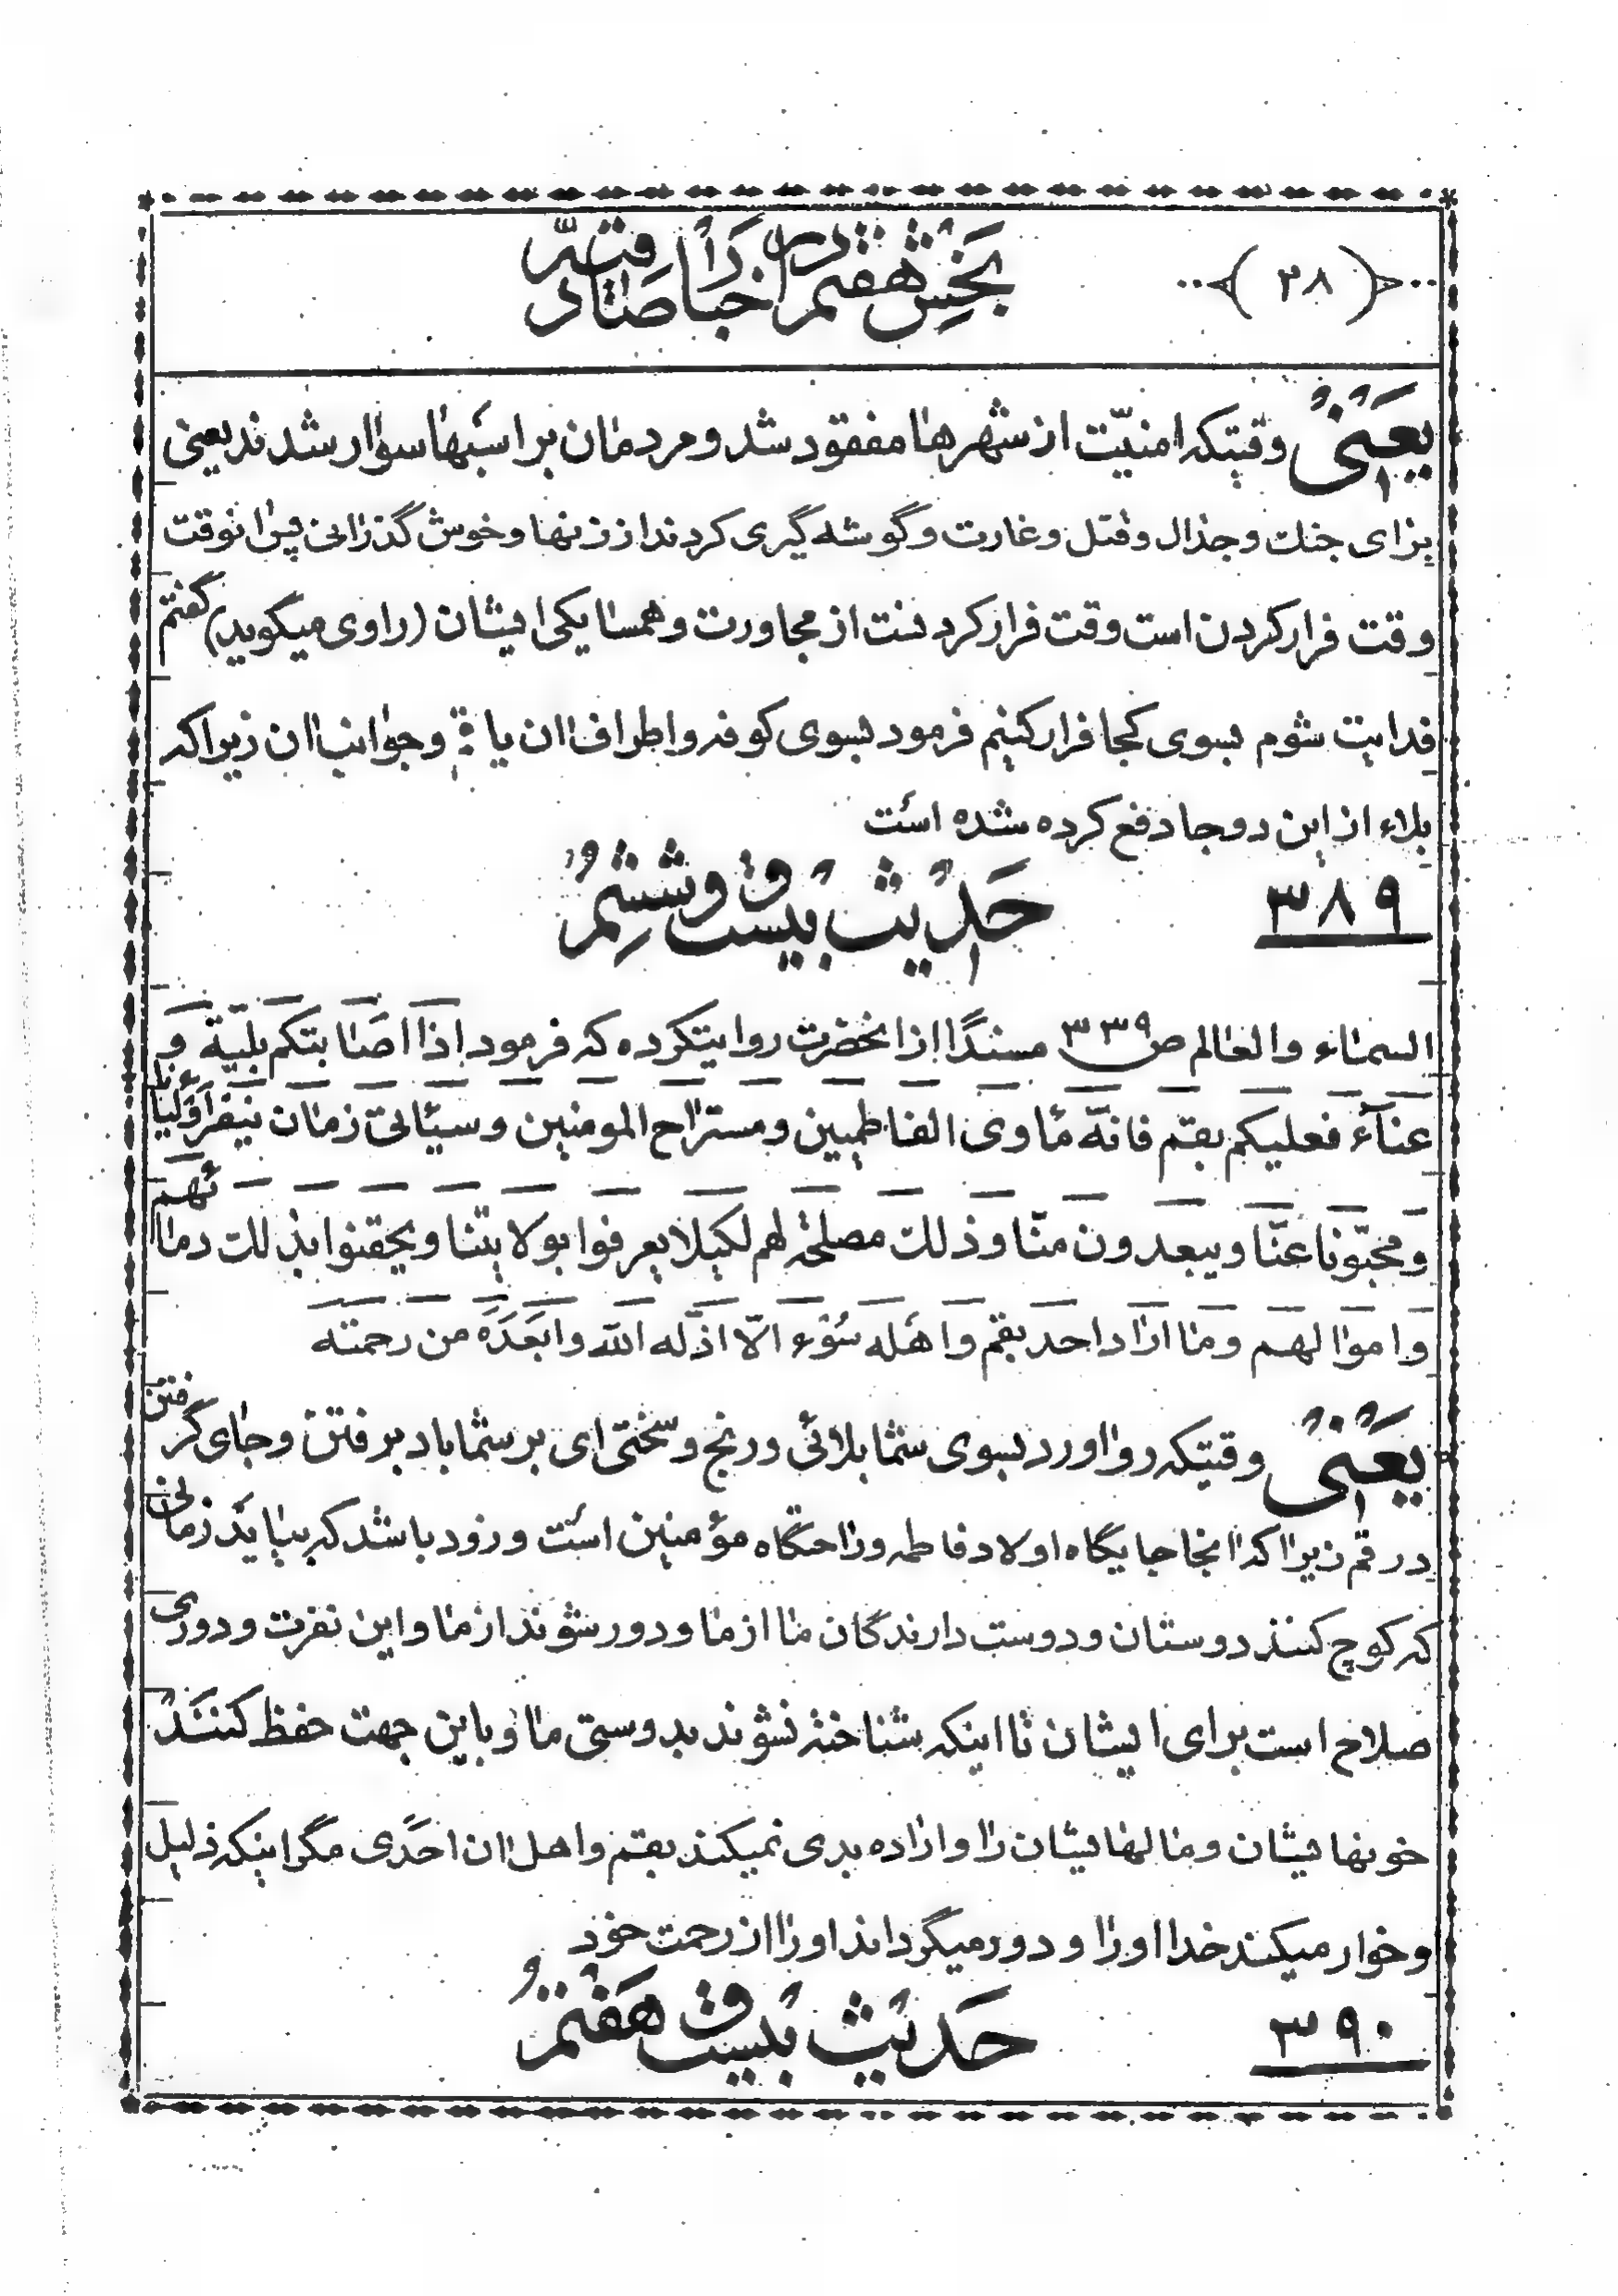 (٣٨)
بخش هفتم در اخبار صادقیه
یعنی وقتیکه امنیّت از شهرها مفقود شد و مردمان بر اسبها سوار شدند یعنی
برای جنك وجدال وقتل وغارت وگوشه گیری کردند از زنها وخوش گذرانی پس انوقت
وقت فرار کردن است وقت فرار کردنست از مجاورت وهمسایکی ایشان (راوی میگوید) گفتم
فدایت شوم بسوی کجا فرار کنیم فرمود بسوی کوفه واطراف ان یا قم وجوانب ان زیرا که
بلاء از این دوجا دفع کرده شده است
٣٨٩
حدیث بیست وششم
السماء والعالم ص ٣٣٩ مسندًا از انحضرت روایتکرده که فرمود اذا اصابتکم بلیّة وَ
عنآء فعلیکم بقم فانّه مأوی الفاطمیین ومستراح المومنین وسیأتی زمان ینفر اولیائنا
ومحبّونا عنّا ویبعدون منّا وذلك مصلحة لهم لکیلا یعرفوا بولایتنا ویحقنوا بذلك دمائهم
واموالهم وما اراد احد بقم واهله سوء الّا اذلّه الله وابعَدَه من رحمته
یعنی وقتیکه رواورد بسوی شما بلائی ورنج وسختی ای بر شما باد برفتن وجای گرفتن
در قم زیرا که انجا جایگاه اولاد فاطمه وراحتگاه مؤمنین است وزود باشد که بیاید زمانی
که کوچ کنند دوستان ودوست دارندگان ما از ما ودور شوند از ما واین نفرت ودوری
صلاح است برای ایشان تا اینکه شناخته نشوند بدوستی ما وباین جهت حفظ کنند
خونهایشان ومالهایشان را واراده بدی نمیکند بقم واهل ان احدی مگر اینکه ذلیل
وخوار میکند خدا اورا ودور میگرداند اورا از رحمت خود
٣٩٠
حدیث بیست وهفتم